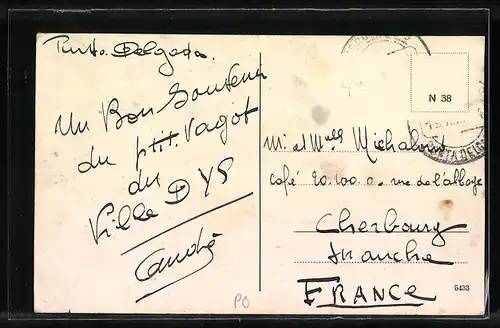 Punta Delgada.
Un Bon Souvenir
du p'tit Vagot
du
Ville D'YS
André
N 38
PONTA DELGADA
M. et Mme Michalout
café 20.100.0. rue de l'abbaye
Cherbourg
Manche
FRANCE
5433
PO